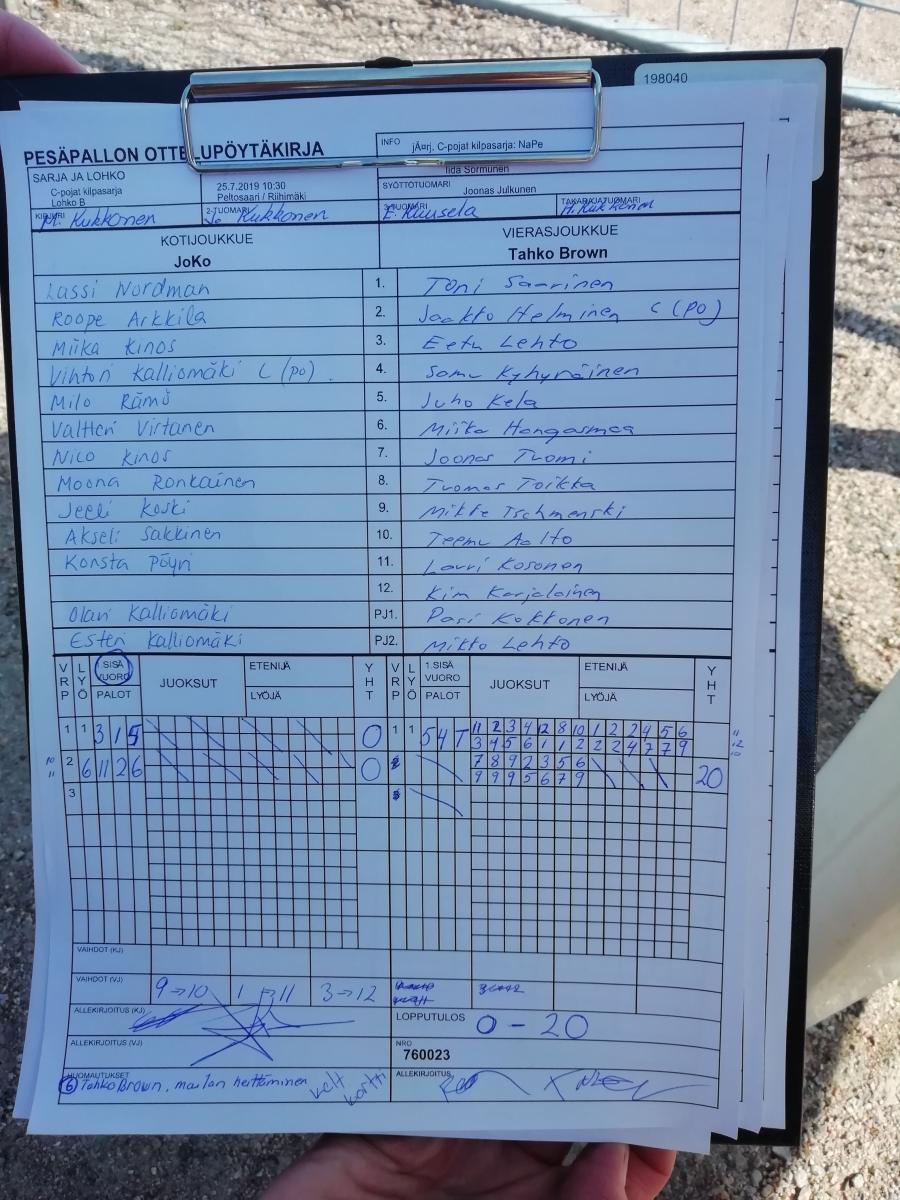 198040
PESÄPALLON OTTELUPÖYTÄKIRJA
INFO jÄ¤rj. C-pojat kilpasarja: NaPe
SARJA JA LOHKO
C-pojat kilpasarja
Lohko B
25.7.2019 10:30
Peltosaari / Riihimäki
Iida Sormunen
SYÖTTÖTUOMARI
Joonas Julkunen
KIRJURI M. Kukkonen
2-TUOMARI Kukkonen
3-TUOMARI E. Kuusela
TAKARAJATUOMARI H. Kukkonen
KOTIJOUKKUE
JoKo
VIERASJOUKKUE
Tahko Brown
Lassi Nordman 1. Toni Saarinen
Roope Arkkila 2. Jaakko Helminen C (po)
Miika Kinos 3. Eetu Lehto
Vihtori Kalliomäki C (po). 4. Samu Kyhyräinen
Milo Rämö 5. Juho Kela
Valtteri Virtanen 6. Miika Hongasmaa
Nico Kinos 7. Joonas Tuomi
Moona Ronkainen 8. Tuomas Toikka
Jeeli Koski 9. Mikke Tschmenski
Akseli Sakkinen 10. Teemu Aalto
Konsta Pöyri 11. Lauri Kosonen
12. Kim Karjalainen
Olavi Kalliomäki PJ1. Pasi Kokkonen
Esteri Kalliomäki PJ2. Mikko Lehto
VRP LYÖ 1.SISÄ VUORO PALOT JUOKSUT ETENIJÄ LYÖJÄ YHT VRP LYÖ 1.SISÄ VUORO PALOT JUOKSUT ETENIJÄ LYÖJÄ YHT
1 1 3 1 5 0 1 1 5 4 T 11 2 3 4 12 8 10 1 2 2 4 5 6
3 4 5 6 1 1 2 2 2 4 7 7 9
2 6 11 2 6 0 7 8 9 2 3 5 6
9 9 9 5 6 7 9 20
3
10
11
11
12
10
VAIHDOT (KJ)
VAIHDOT (VJ) 9→10 1→11 3→12
ALLEKIRJOITUS (KJ)
LOPPUTULOS 0 - 20
ALLEKIRJOITUS (VJ)
NRO
760023
HUOMAUTUKSET
6 Tahko Brown, mailan heittäminen kelt kortti
ALLEKIRJOITUS